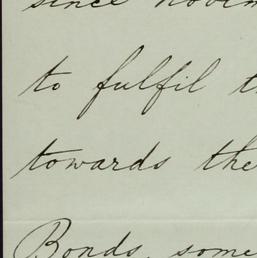 since novem
to fulfil t
towards the
Bonds, some